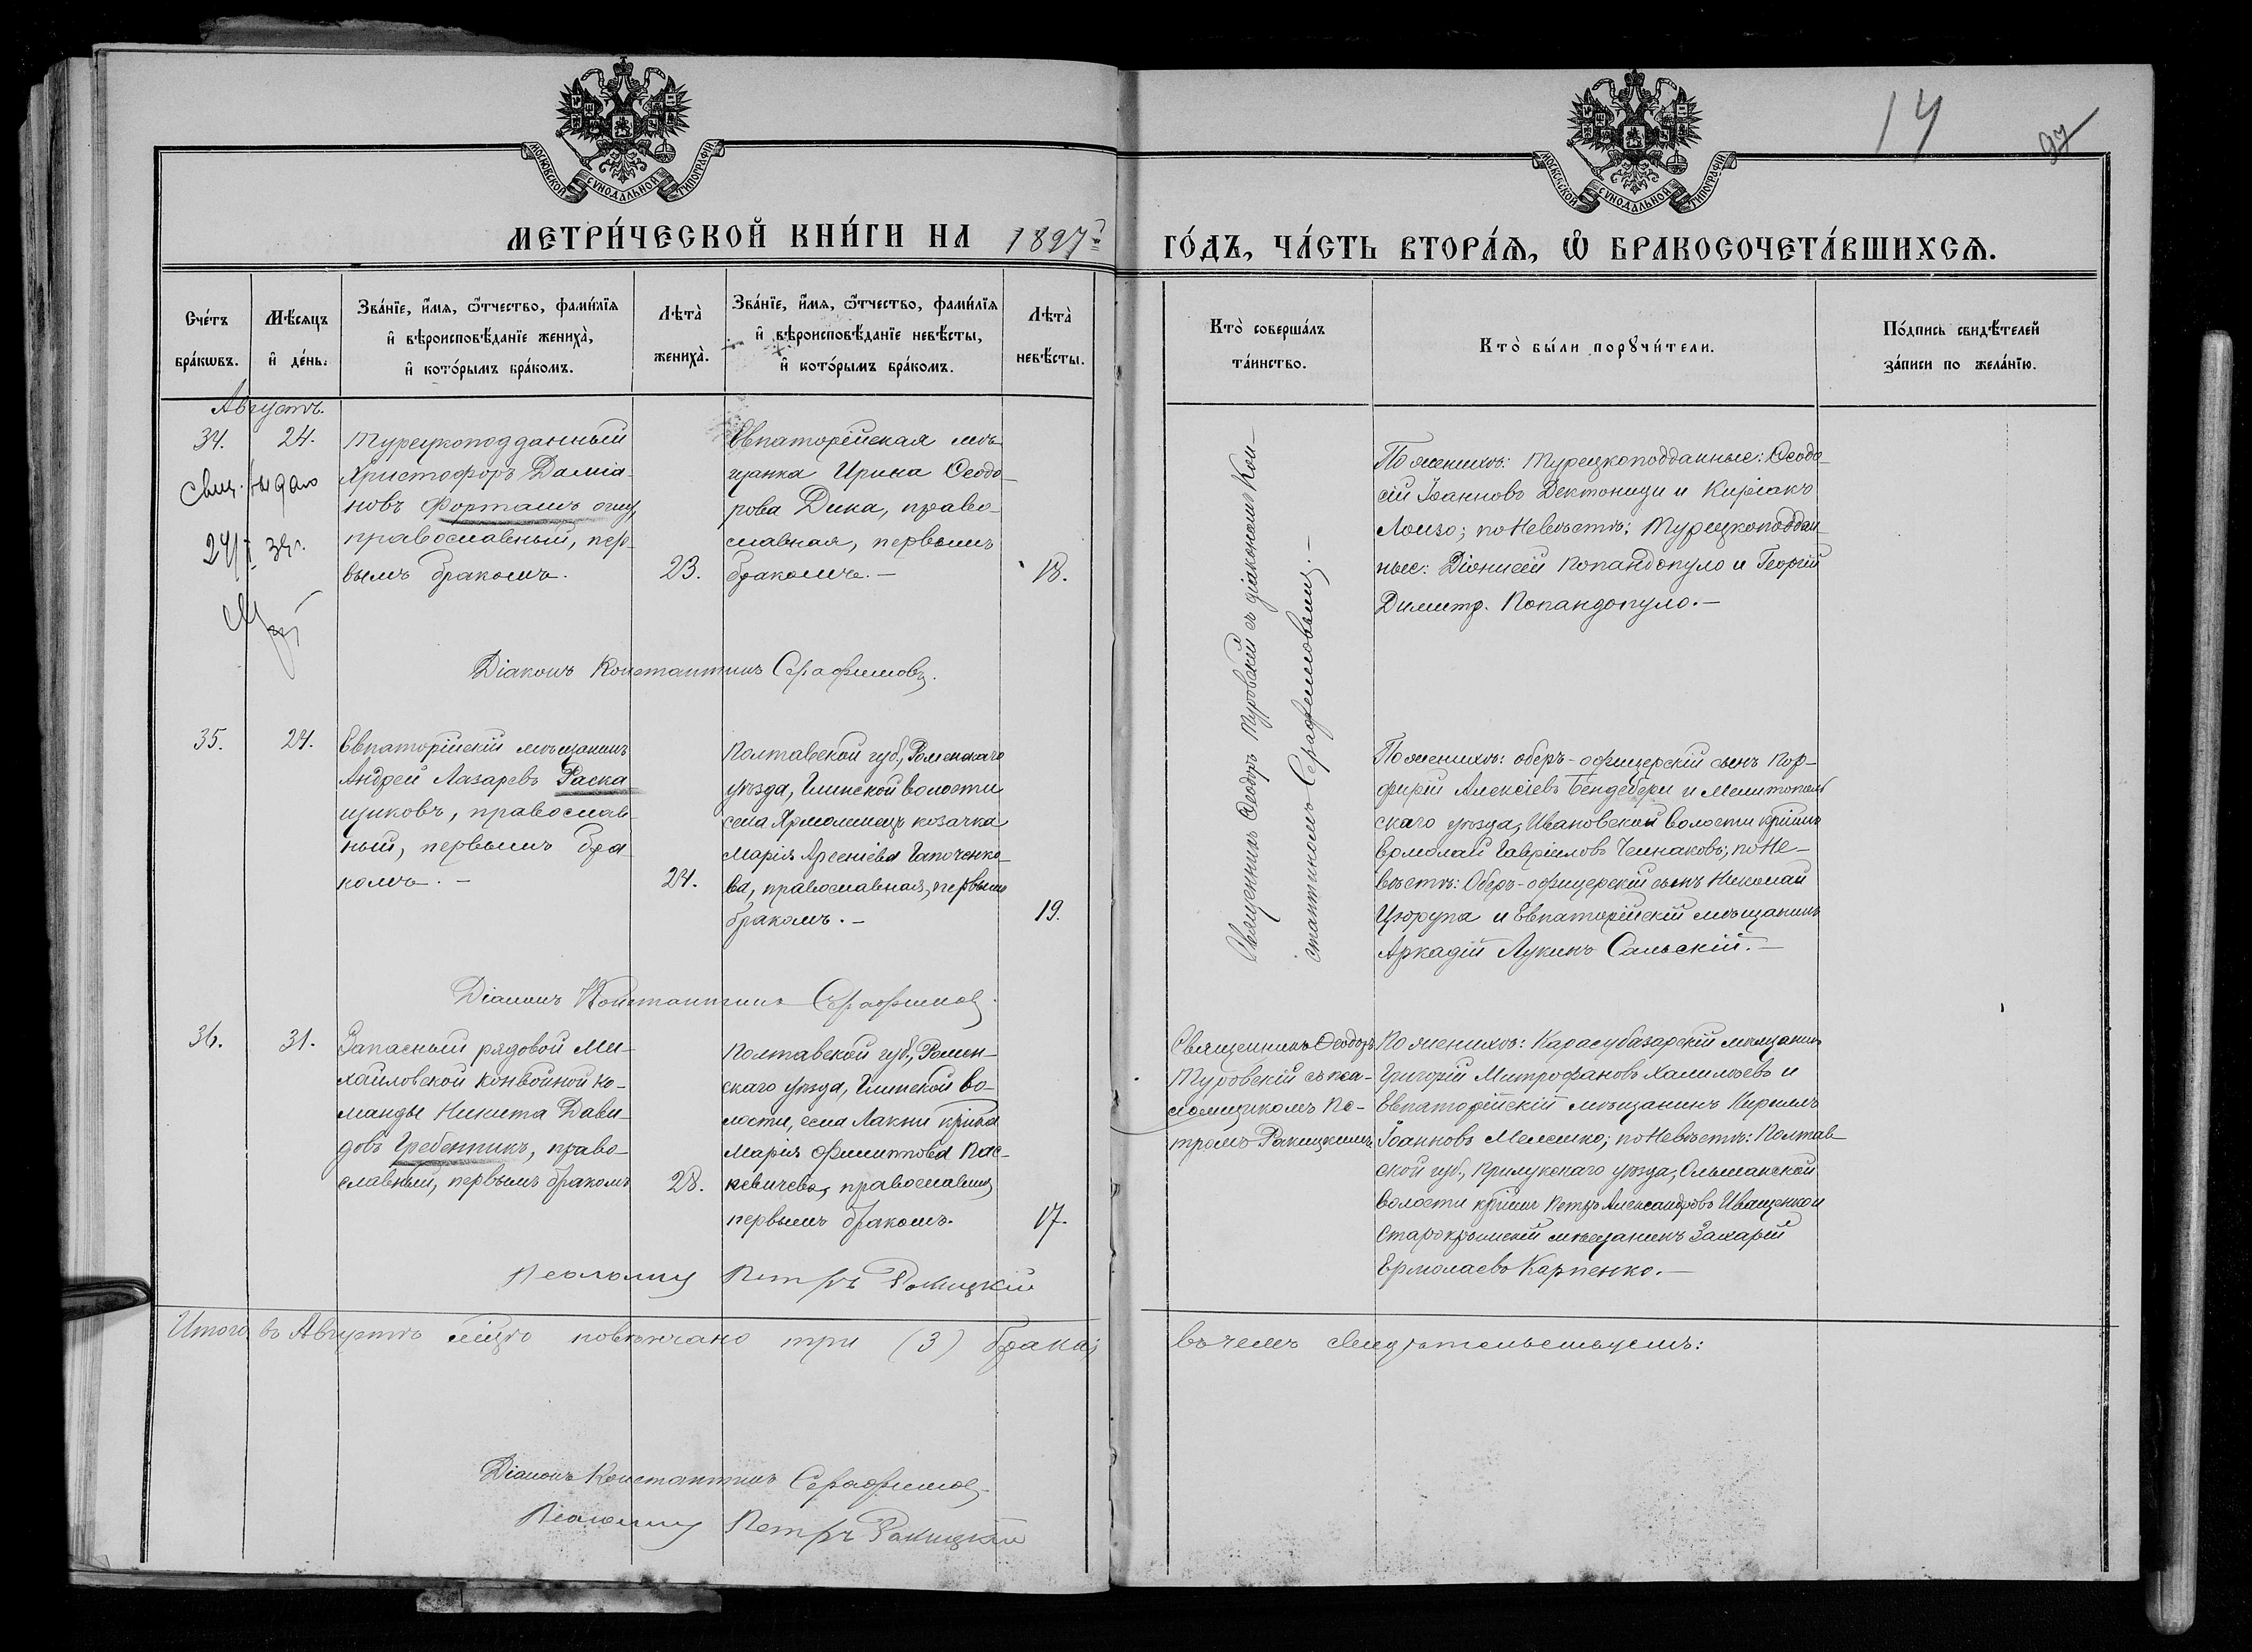 14
97
МОСКОВСКОЙ СУНОДАЛЬНОЙ ТИПОГРАФІИ
МОСКОВСКОЙ СУНОДАЛЬНОЙ ТИПОГРАФІИ
МЕТРИ́ЧЕСКОЙ КНИ́ГИ НА 1897й
ГО́ДЪ, ЧА́СТЬ ВТОРА́Я, Ѡ БРАКОСОЧЕТА́ВШИХСЯ.
Сче́тъ бра́кѡвъ.
Мѣ́сяцъ и де́нь.
Зва́нїе, и́мя, ѻ҆́тчество, фами́лїя и вѣроисповѣ́данїе жениха̀, и кото́рымъ бра́комъ.
Лѣта̀ жениха̀.
Зва́нїе, и́мя, ѻ҆́тчество, фами́лїя и вѣроисповѣ́данїе невѣ́сты, и кото́рымъ бра́комъ.
Лѣта̀ невѣ́сты.
Кто̀ соверша́лъ та́инство.
Кто̀ бы́ли порꙋчи́тели.
По́дпись свидѣ́телей за́писи по жела́нїю.
Августъ.
34.
24.
Турецкоподданный
Христофоръ Даміа-
новъ Форташъ оглу,
православный, пер-
вымъ бракомъ.
23.
Евпаторійская мѣ-
щанка Ирина Ѳеодо-
рова Дика, право-
славная, первымъ
бракомъ.—
18.
Священникъ Ѳеодоръ Туровскій съ діакономъ Кон-
стантиномъ Серафимовымъ.—
По женихѣ: Турецкоподданные: Ѳеодо-
сій Іоанновъ Дектониди и Киріакъ
Лоизо; по невѣстѣ: Турецкоподдан-
ные: Діонисій Попандопуло и Георгій
Димитр. Попандопуло.—
Свид. выдано
Діаконъ Константинъ Серафимовъ.
35.
24.
Евпаторійскій мѣщанинъ
Андрей Лазаревъ Раска-
щиковъ, православ-
ный, первымъ бра-
комъ.—
24.
Полтавской губ., Роменскаго
уѣзда, Глинской волости
села Ярмолинецъ козачка
Марія Арсеніева Гапоченко-
ва, православная, первымъ
бракомъ.—
19.
По женихѣ: оберъ-офицерскій сынъ Пор-
фирій Алексіевъ Бендебери и Мелитополь-
скаго уѣзда, Ивановской волости крѣшнъ
Ермолай Гавріиловъ Чемнаковъ; по не-
вѣстѣ: Оберъ-офицерскій сынъ Николай
Цюрупа и Евпаторійскій мѣщанинъ
Аркадій Лукинъ Сальскій.—
Діаконъ Константинъ Серафимовъ.
36.
31.
Запасный рядовой Ми-
хайловской конвойной ко-
манды Никита Дави-
довъ Гребенникъ, право-
славный, первымъ бракомъ
28.
Полтавской губ., Ромен-
скаго уѣзда, Глинской во-
лости, села Лакни крѣстка
Марія Филиппова Пас-
кевичева, православная,
первымъ бракомъ.
17.
Священникъ Ѳеодоръ
Туровскій съ пса-
ломщикомъ Пе-
тромъ Ракицкимъ.
По женихѣ: Карасубазарскій мѣщанинъ
Григорій Митрофановъ Халилѣевъ и
Евпаторійскій мѣщанинъ Кириллъ
Іоанновъ Мелешко; по невѣстѣ: Полтав-
ской губ., Прилукскаго уѣзда, Ольшанской
волости крѣшнъ Петръ Александровъ Иващенко и
Старокрымскій мѣщанинъ Захарій
Ермолаевъ Карпенко.—
Псаломщ Петръ Ракицкій
Итого въ Августѣ мѣсяцѣ повѣнчано три (3) брака;
въ чемъ свидѣтельствуемъ:
Діаконъ Константинъ Серафимовъ.
Псаломщ Петръ Ракицкій